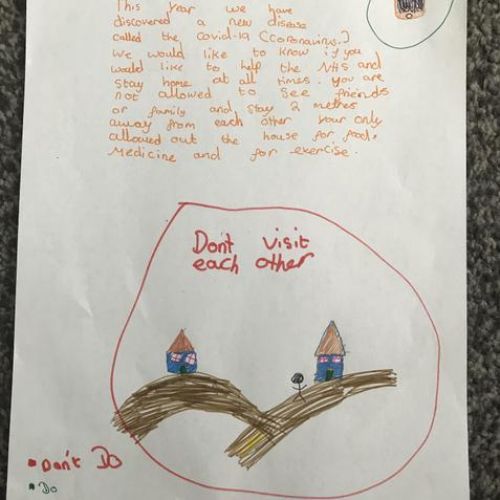 This year we have
discovered a new disease
called the Covid-19 (coronavirus.)
We would like to know if you
would like to help the NHS and
stay home at all times. you are
not allowed to see friends
or family and stay 2 metres
away from each other your only
allowed out the house for food,
medicine and for exercise.
Don't visit
each other
Don't Do
Do